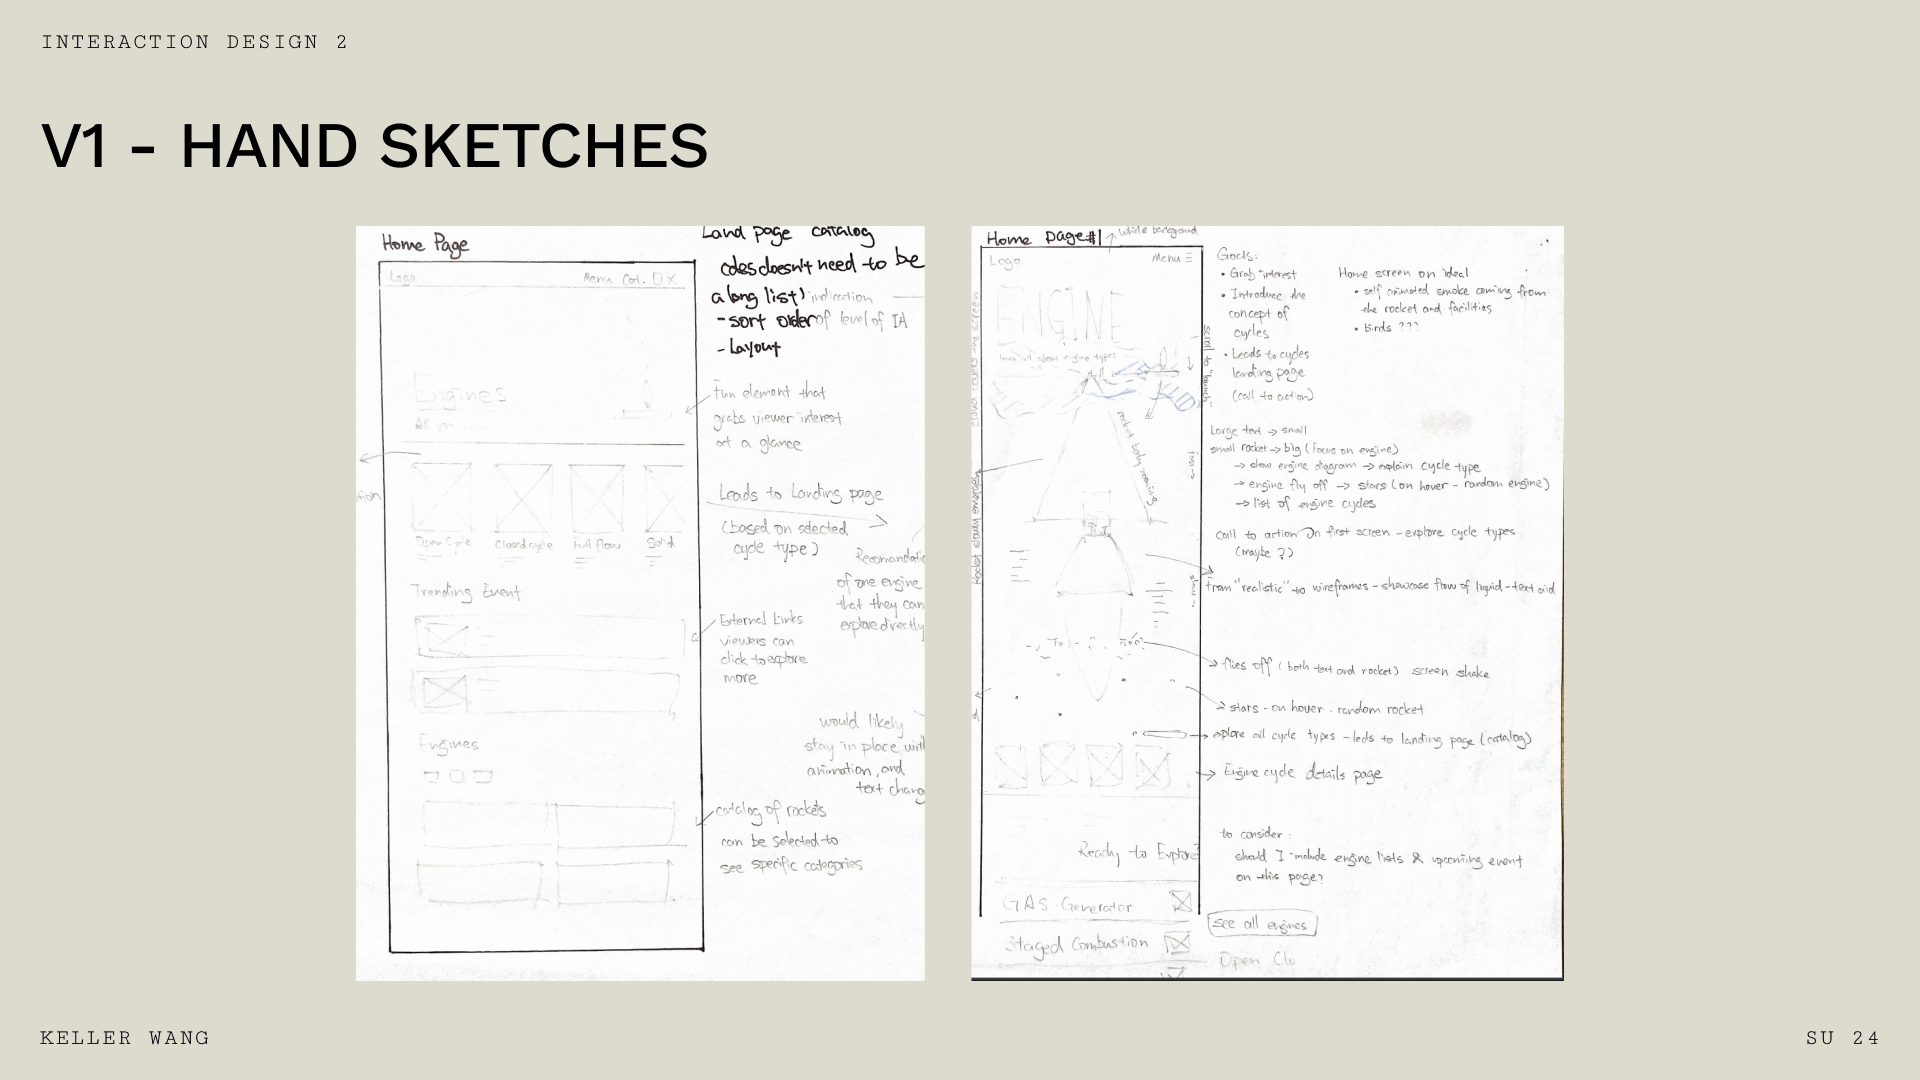 INTERACTION DESIGN 2
V1 - HAND SKETCHES
Home Page
Logo
Menu
Engines
All you
Open Cycle
Closed cycle
Full flow
Solid
Trending Event
Engines
Land page catalog
doesn't need to be
a long list!
indication
- sort order
of level of IA
- Layout
Fun element that
grabs viewer interest
at a glance
Leads to Landing page
(based on selected
cycle type)
Recomandatio
of one engine
that they can
explore directly
External Links
viewers can
click to explore
more
would likely
stay in place with
animation, and
text chang
catalog of rockets
can be selected to
see specific categories
tion
Home page #1
White background
Logo
Menu
ENGINE
learn all about engine types
cloud covers the screen
scroll to "launch"
rocket body zooming
Rocket slowly emerges
Goals:
• Grab interest
• Introduce the
concept of
cycles
• Leads to cycles
landing page
(call to action)
Home screen on ideal
• self animated smoke coming from
the rocket and facilities
• birds ???
Large text → small
small rocket → big (focus on engine)
→ show engine diagram → explain cycle type
→ engine fly off → stars (on hover - random engine)
→ list of engine cycles
call to action on first screen - explore cycle types
(maybe?)
from "realistic" to wireframes - showcase flow of liquid - text aid
flies off (both text and rocket) screen shake
stars - on hover - random rocket
explore all cycle types - leds to landing page (catalog)
Engine cycle details page
to consider:
should I include engine lists & upcoming event
on this page?
Ready to Explore?
GAS Generator
Staged Combustion
see all engines
Open Clo
KELLER WANG
SU 24